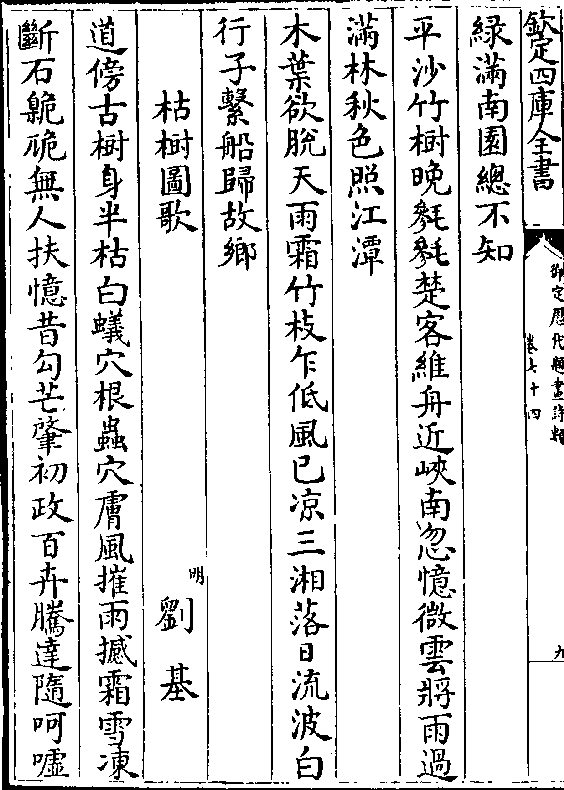 欽定四庫全書
御定歴代題畫詩類
卷七十四
九
緑滿南園總不知
平沙竹樹晚毿毿楚客維舟近峽南忽憶微雲將雨過
滿林秋色照江潭
木葉欲脫天雨霜竹枝乍低風已凉三湘落日流波白
行子繫船歸故鄉
枯樹圖歌
明 劉基
道傍古樹身半枯白蟻穴根蟲穴膚風摧雨撼霜雪凍
斷石臲卼無人扶憶昔勾芒肇初政百卉騰達隨呵噓